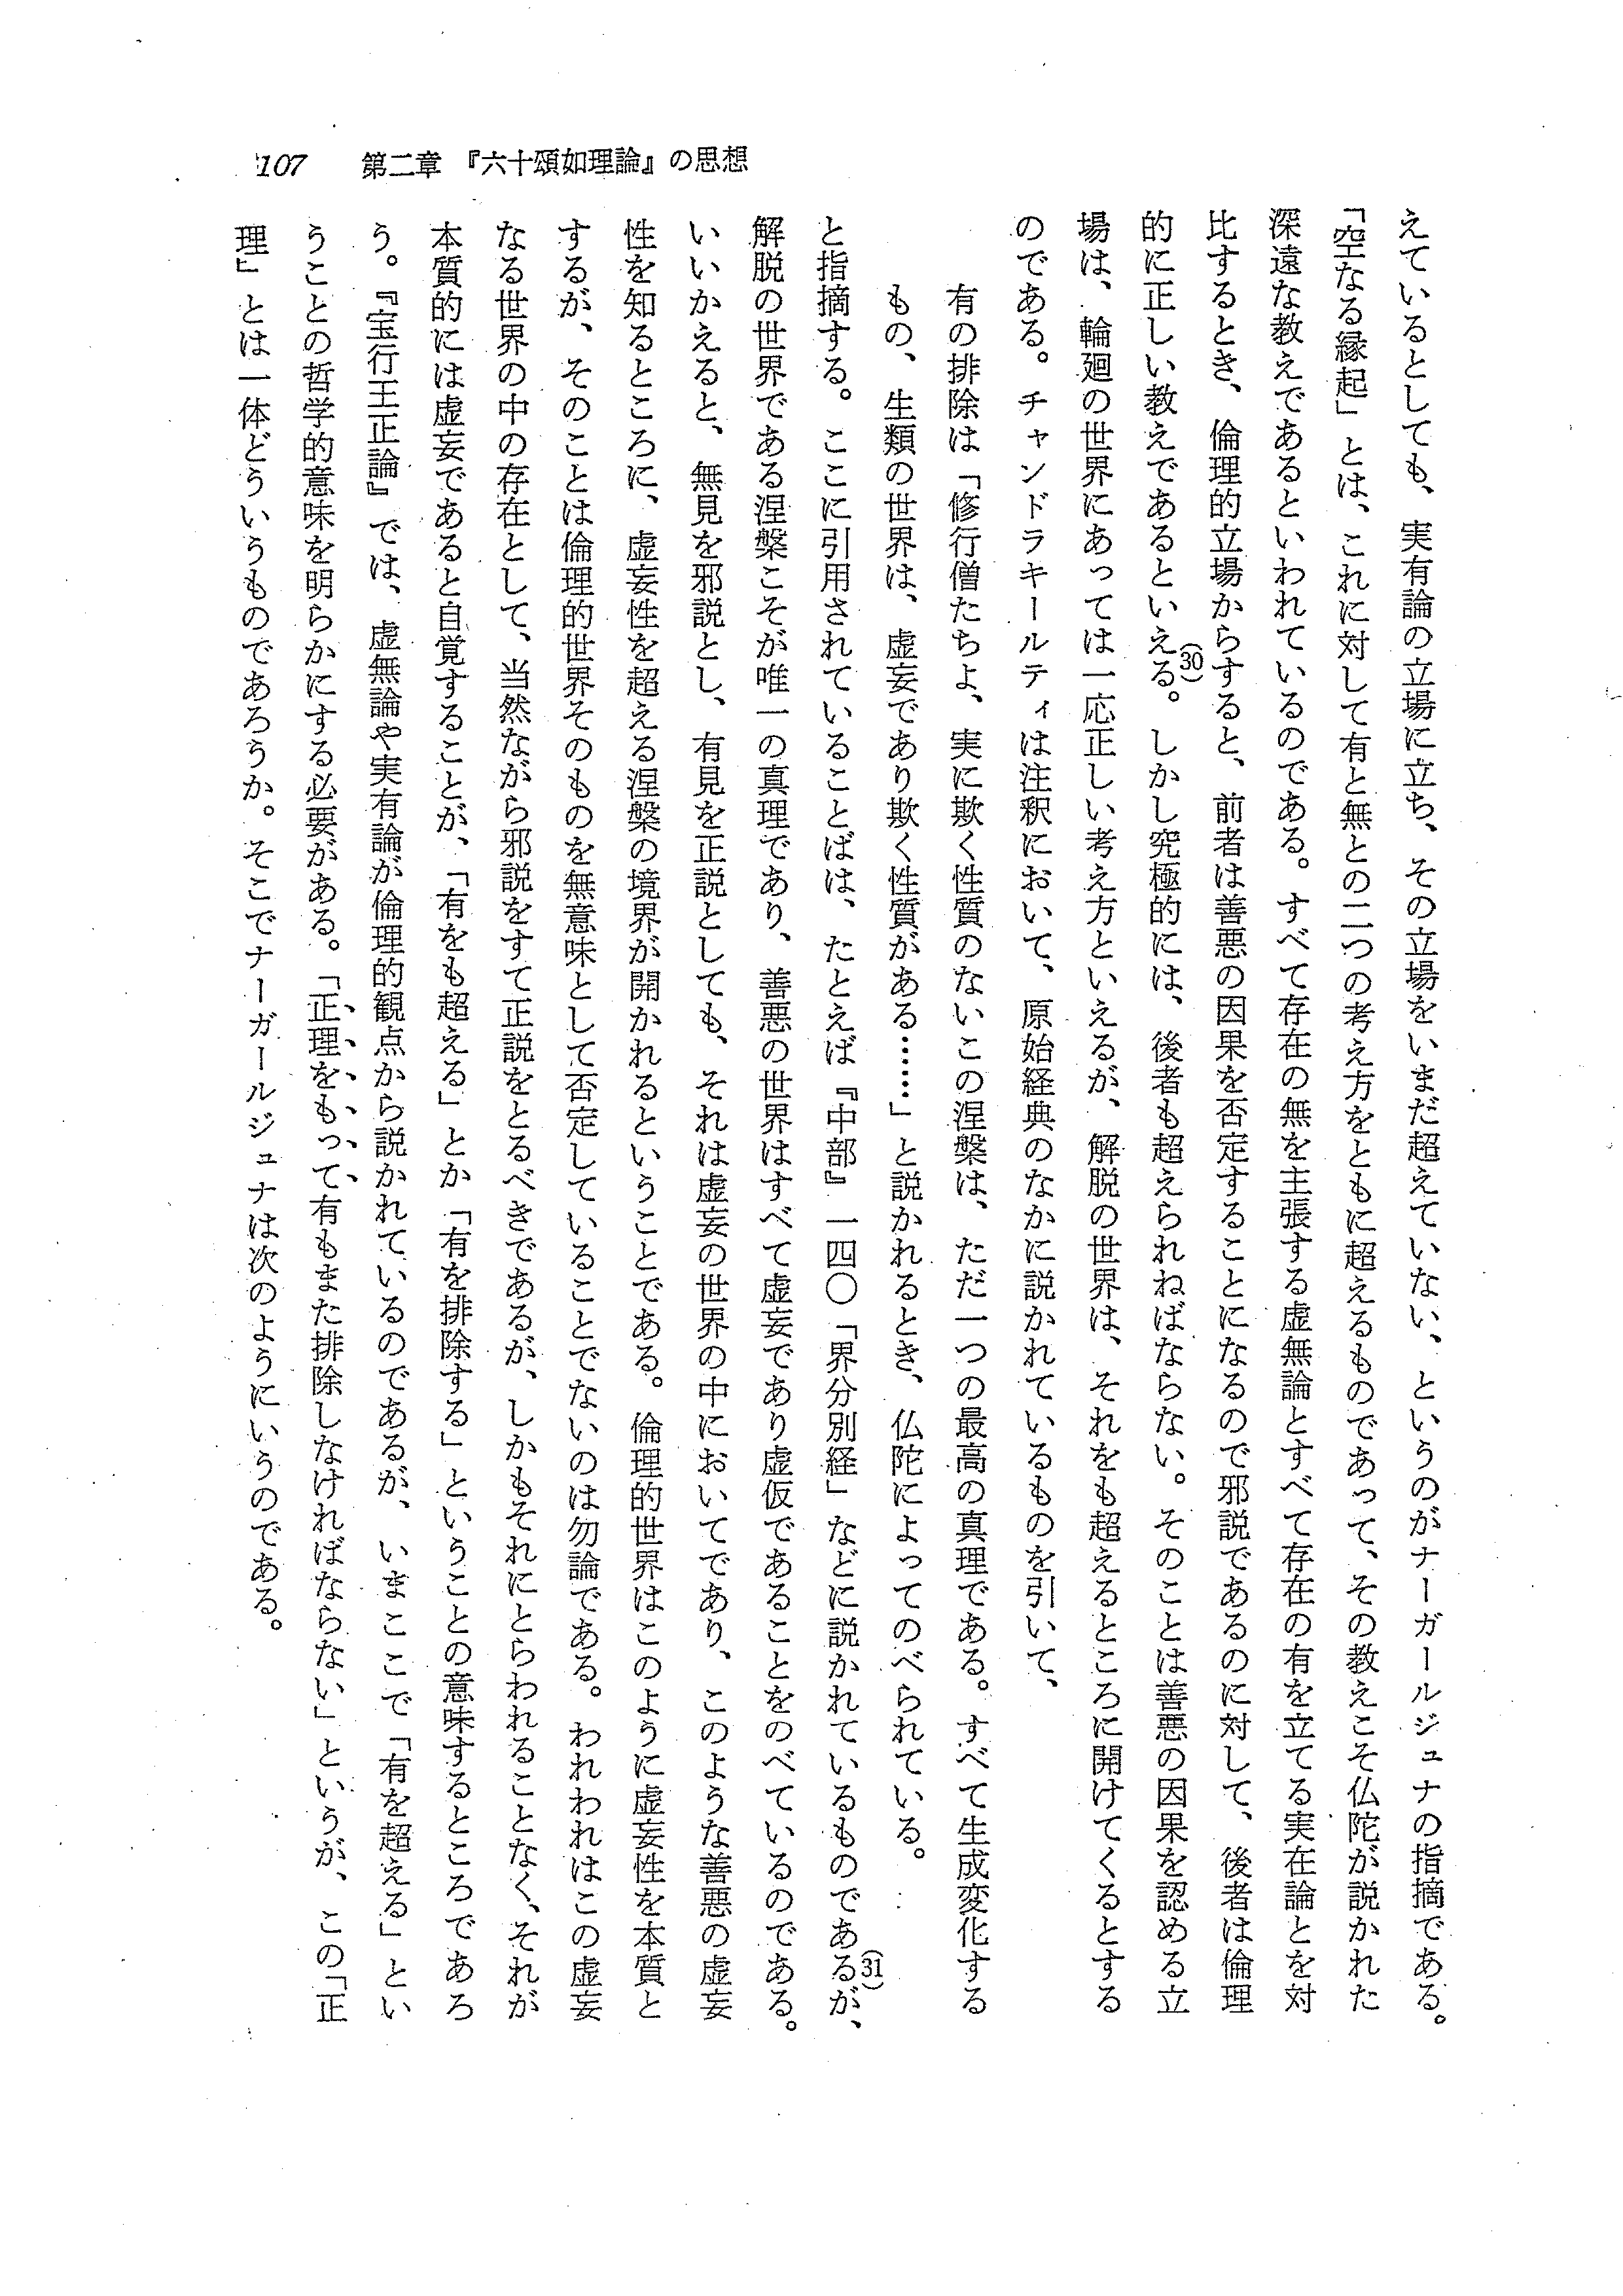 107　第二章　『六十頌如理論』の思想
えているとしても、実有論の立場に立ち、その立場をいまだ超えていない、というのがナーガールジュナの指摘である。
「空なる縁起」とは、これに対して有と無との二つの考え方をともに超えるものであって、その教えこそ仏陀が説かれた
深遠な教えであるといわれているのである。すべて存在の無を主張する虚無論とすべて存在の有を立てる実在論とを対
比するとき、倫理的立場からすると、前者は善悪の因果を否定することになるので邪説であるのに対して、後者は倫理
的に正しい教えであるといえる(30)。しかし究極的には、後者も超えられねばならない。そのことは善悪の因果を認める立
場は、輪廻の世界にあっては一応正しい考え方といえるが、解脱の世界は、それをも超えるところに開けてくるとする
のである。チャンドラキールティは注釈において、原始経典のなかに説かれているものを引いて、
有の排除は「修行僧たちよ、実に欺く性質のないこの涅槃は、ただ一つの最高の真理である。すべて生成変化する
もの、生類の世界は、虚妄であり欺く性質がある……」と説かれるとき、仏陀によってのべられている。
と指摘する。ここに引用されていることばは、たとえば『中部』一四〇「界分別経」などに説かれているものであるが(31)、
解脱の世界である涅槃こそが唯一の真理であり、善悪の世界はすべて虚妄であり虚仮であることをのべているのである。
いいかえると、無見を邪説とし、有見を正説としても、それは虚妄の世界の中においてであり、このような善悪の虚妄
性を知るところに、虚妄性を超える涅槃の境界が開かれるということである。倫理的世界はこのように虚妄性を本質と
するが、そのことは倫理的世界そのものを無意味として否定していることでないのは勿論である。われわれはこの虚妄
なる世界の中の存在として、当然ながら邪説をすて正説をとるべきであるが、しかもそれにとらわれることなく、それが
本質的には虚妄であると自覚することが、「有をも超える」とか「有を排除する」ということの意味するところであろ
う。『宝行王正論』では、虚無論や実有論が倫理的観点から説かれているのであるが、いまここで「有を超える」とい
うことの哲学的意味を明らかにする必要がある。「正理をもって有もまた排除しなければならない」というが、この「正
理」とは一体どういうものであろうか。そこでナーガールジュナは次のようにいうのである。